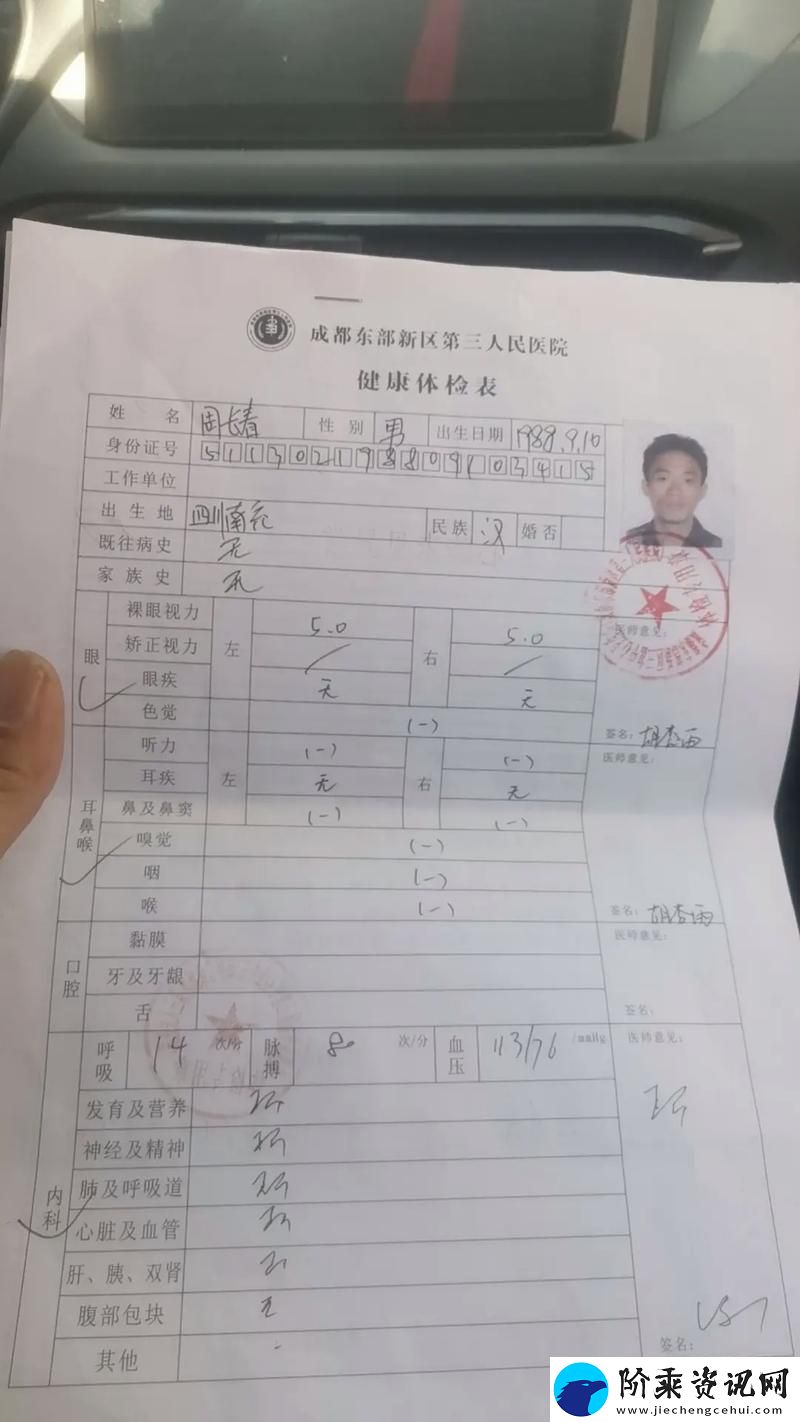 成都东部新区第三人民医院
健康体检表
姓 名 周长春 性 别 男 出生日期 1988.9.10
身份证号 511302198809103415
工作单位
出 生 地 四川南充 民族 汉 婚否
既往病史 无
家 族 史 无
眼 裸眼视力 左 5.0 右 5.0 医师意见:
矫正视力 / /
眼疾 无 无
色觉 (-) 签名: 胡杏雨
耳鼻喉 听力 左 (-) 右 (-) 医师意见:
耳疾 无 无
鼻及鼻窦 (-) (-)
嗅觉 (-)
咽 (-)
喉 (-) 签名: 胡杏雨
口腔 黏膜 医师意见:
牙及牙龈
舌 签名:
内科 呼吸 14 次/分 脉搏 80 次/分 血压 113/76 /mmHg 医师意见:
发育及营养
神经及精神
肺及呼吸道
心脏及血管
肝、胰、双肾
腹部包块 无
其他 -
签名:
阶乘资讯网
www.jiechengcehui.com